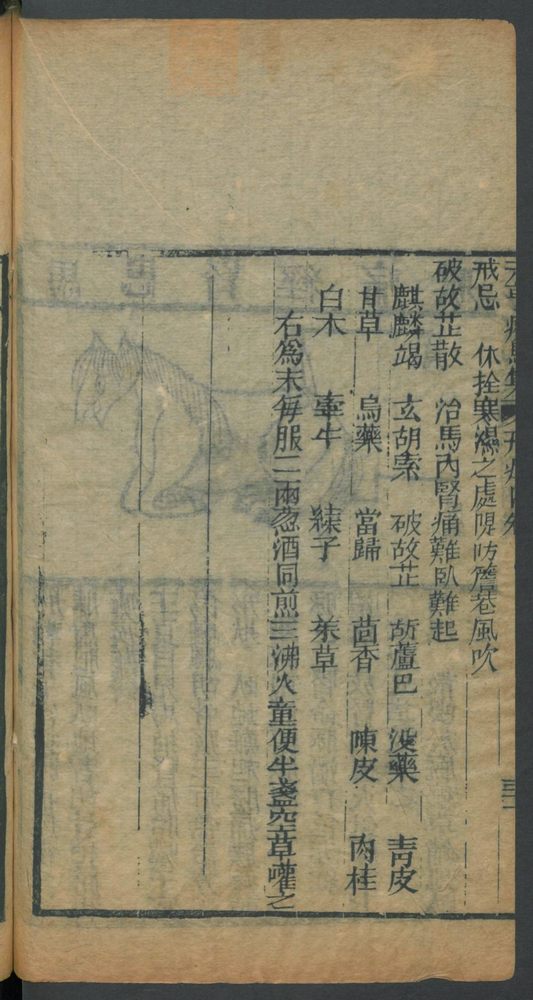 元亨療馬集
戒忌　休拴寒濕之處隄防簷巷風吹
破故芷散　治馬內腎痛難臥難起
麒麟竭　玄胡索　破故芷　葫蘆巴　沒藥　青皮
甘草　烏藥　當歸　茴香　陳皮　肉桂
白木　牽牛　練子　茱草
右為末每服二兩葱酒同煎三沸入童便半盞空草嚾之